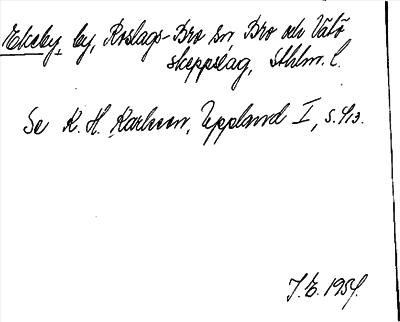 Ekeby, by, Roslags-Bro sn Bro och Vätö
skeppslag, Sthlm. l.
Se K. H. Karlsson, Uppland I, s. 413.
J. E. 1954.